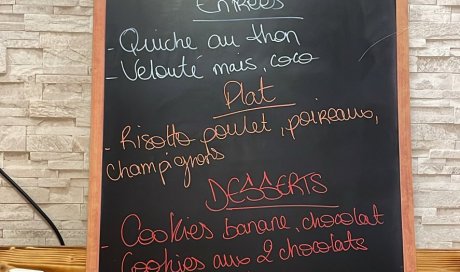 ENTRÉES
- Quiche au thon
- Velouté maïs, coco
Plat
- Risotto poulet, poireaux,
champignons
DESSERTS
- Cookies banane, chocolat
- Cookies aux 2 chocolats